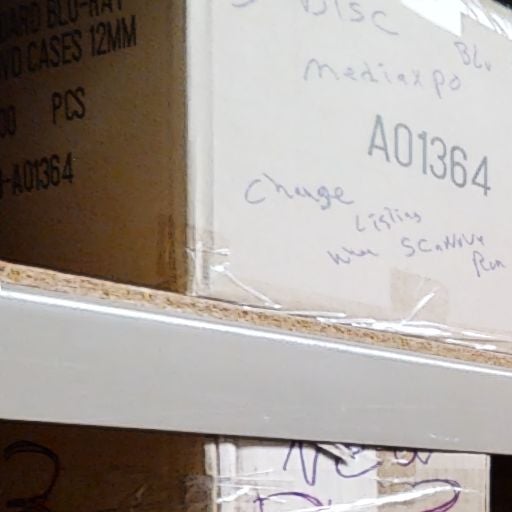 DARD BLU-RAY
VD CASES 12MM
00 PCS
-A01364
Disc
Blu
Mediaxpo
A01364
Change
Listing
Run
New